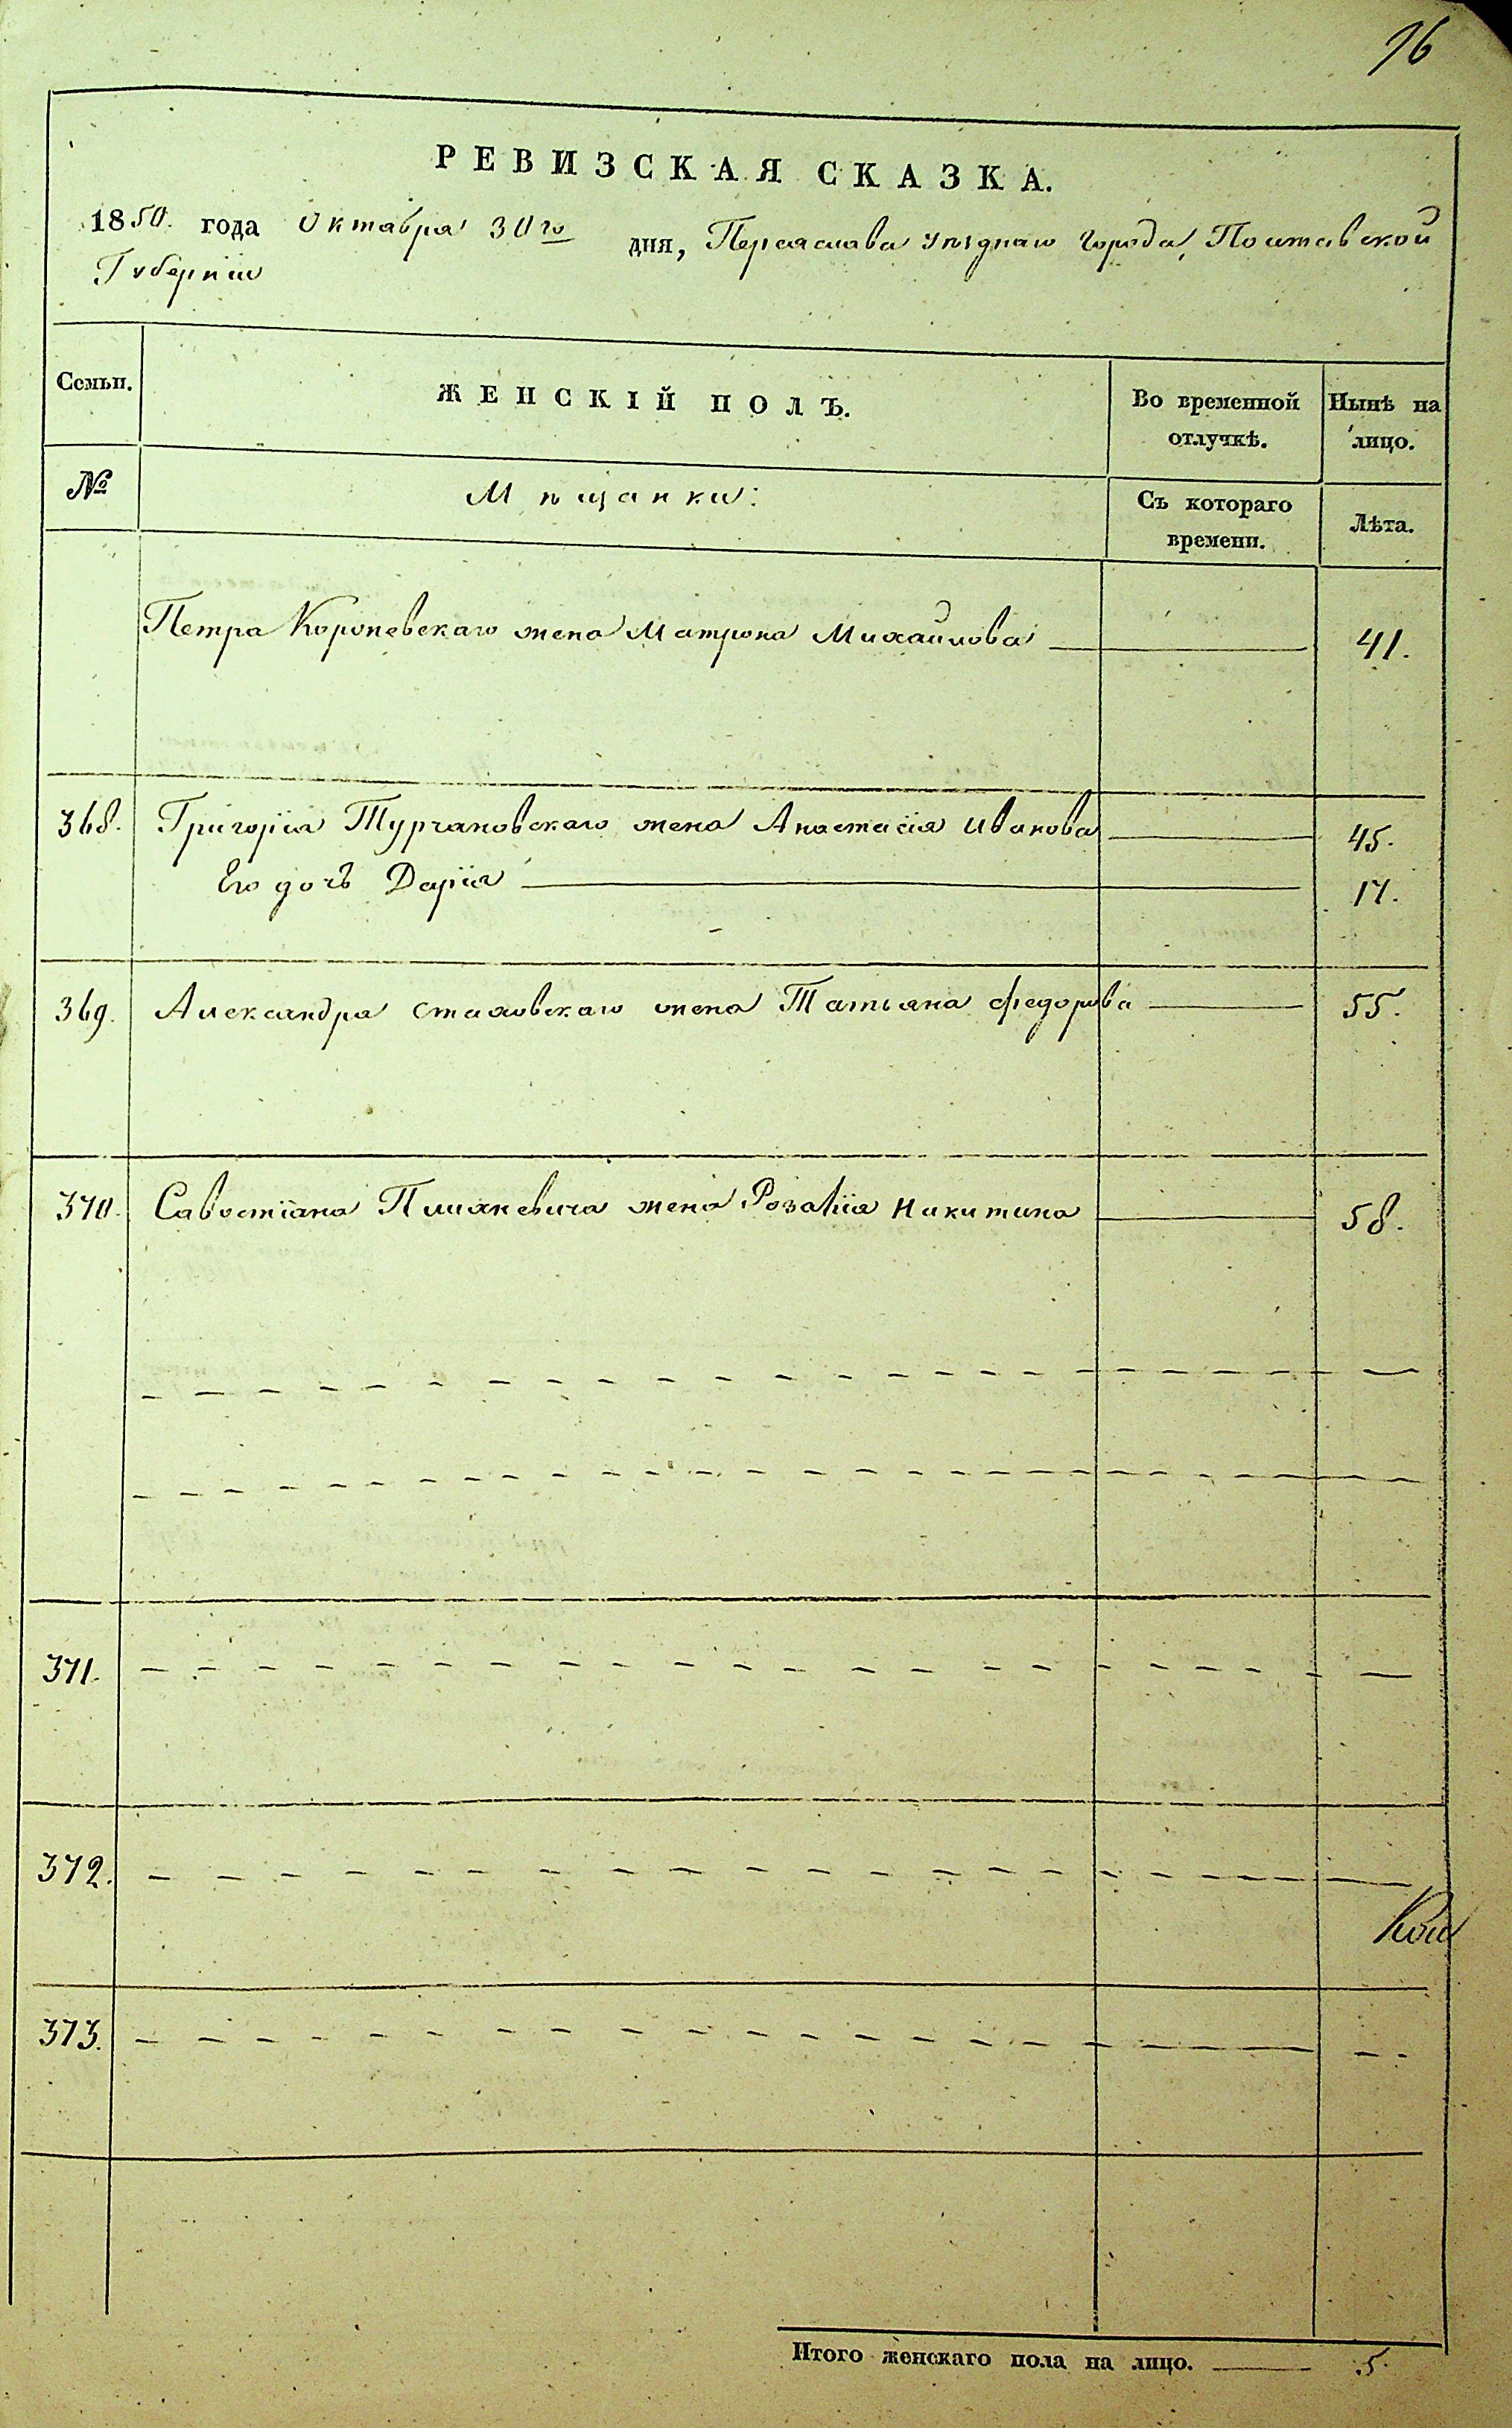 96
РЕВИЗСКАЯ СКАЗКА.
1850. года Октабра 30го дня, Переяслава уѣзднаго города, Полтавской
Губерніи
Семьи. ЖЕНСКІЙ ПОЛЪ. Во временной отлучкѣ. Нынѣ на лицо.
№ Мѣщанки: Съ котораго времени. Лѣта.
Петра Короневскаго жена Матрона Михайлова 41.
368. Григорія Турчановскаго жена Анастасія Иванова 45.
Его дочь Дарія 17.
369. Александра Стаховскаго жена Татьяна Федорова 55.
370. Савостіана жена Розалія Никитина 58.
371.
372.
373.
Итого женскаго пола на лицо. 5.